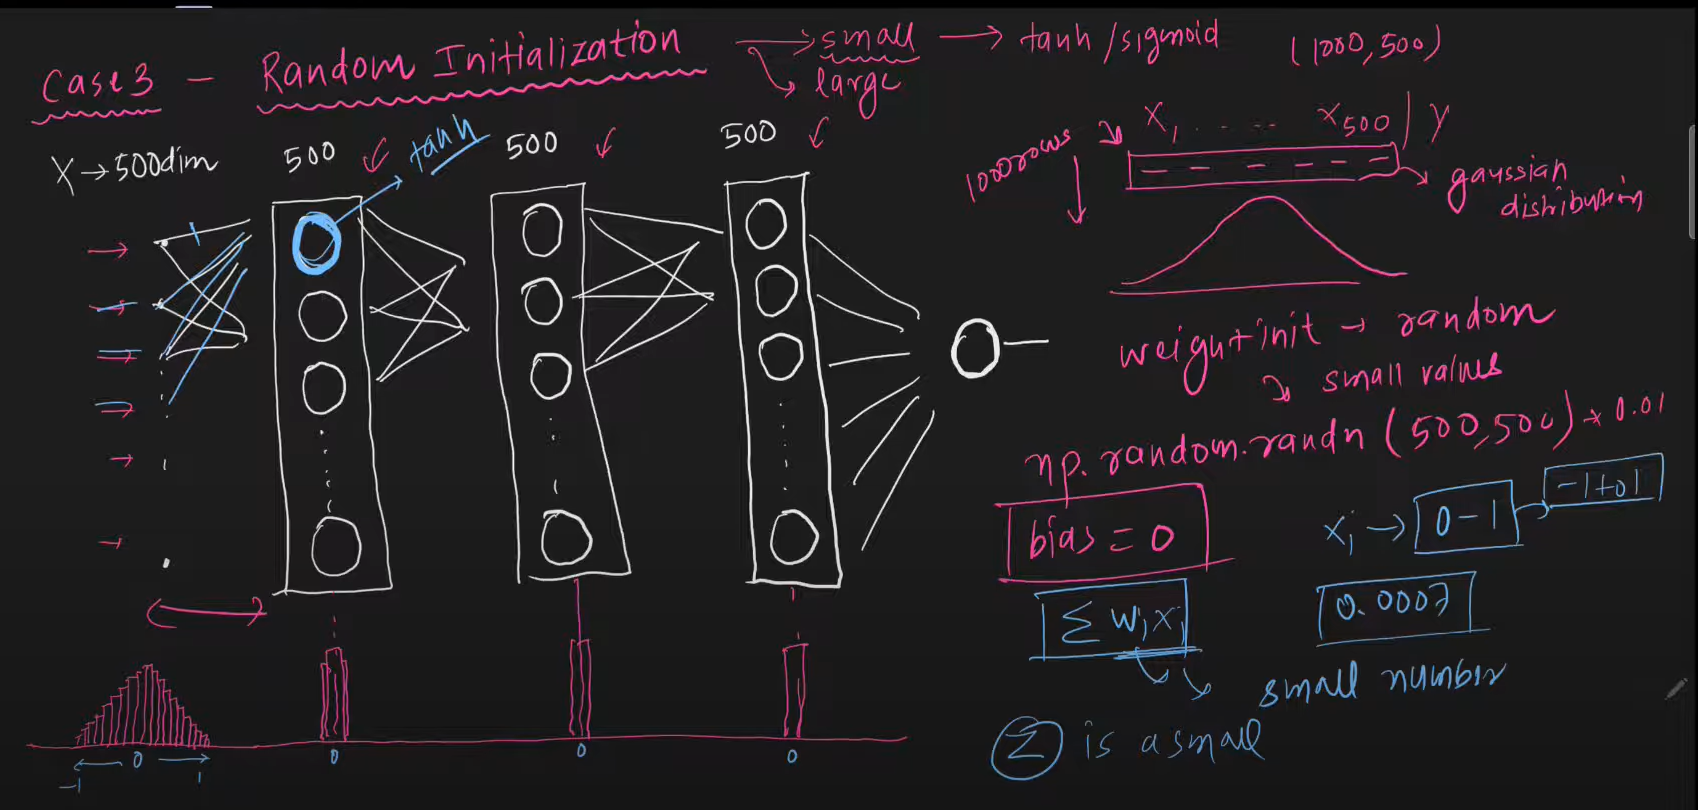 Case 3 - Random Initialization → small → tanh / sigmoid (1000, 500)
↳ large
X → 500dim 500 tanh 500 500
1000 rows X1 . . . . . X500 | y
gaussian
distribution
weight init → random
↘ small values
np.random.randn (500,500) * 0.01
bias = 0
xi → 0 - 1 → -1 to 1
Σ wixi 0.0007
small number
Z is a small
-1 0 1 0 0 0